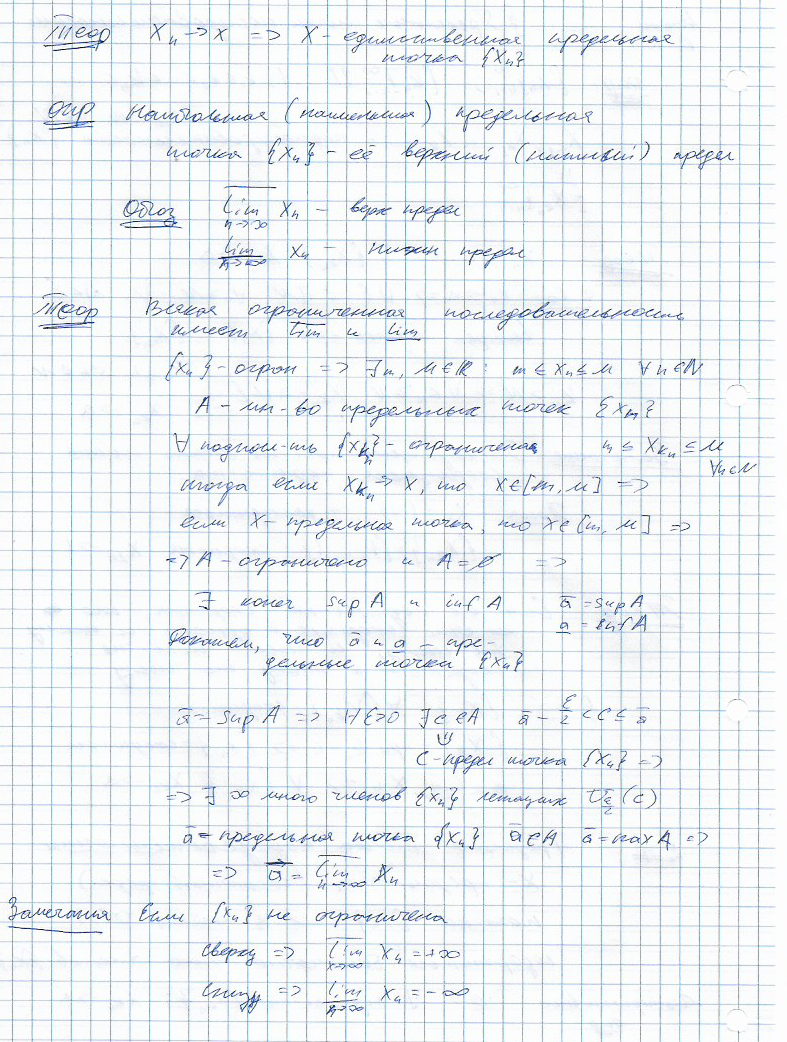 Теор Xₙ → x => X - единственная предельная
точка {Xₙ}
Опр Наибольшая (наименьшая) предельная
точка {Xₙ} - её верхний (нижний) предел
Обоз \overline{lim}_{n→∞} Xₙ - верх предел
\underline{lim}_{n→∞} Xₙ - нижн предел
Теор Всякая ограниченная последовательность
имеет \overline{lim} и \underline{lim}
{Xₙ} - огран => ∃ m, M ∈ ℝ : m ≤ Xₙ ≤ M ∀ n ∈ N
A - мн-во предельных точек {Xₙ}
∀ подпосл-ть {X_{kₙ}} - ограничена m ≤ X_{kₙ} ≤ M
∀n∈N
тогда если X_{kₙ} → X, то X ∈ [m, M] =>
если X - предельная точка, то X ∈ [m, M] =>
=> A - ограничено и A = ∅ =>
∃ конеч sup A и inf A \overline{a} = sup A
\underline{a} = inf A
Докажем, что \overline{a} и \underline{a} - пре-
дельные точки {Xₙ}
\overline{a} = sup A => ∀ε>0 ∃ c ∈ A \overline{a} - ε/2 < c ≤ \overline{a}
⇓
C - предел точка {Xₙ} =>
=> ∃ ∞ много членов {Xₙ} лежащих U_{ε/2}(c)
\overline{a} = предельная точка {Xₙ} \overline{a} ∈ A \overline{a} = max A =>
=> \overline{a} = \overline{lim}_{n→∞} Xₙ
Замечания Если {Xₙ} не ограничена
сверху => \overline{lim}_{x→∞} Xₙ = +∞
снизу => \underline{lim}_{n→∞} Xₙ = -∞